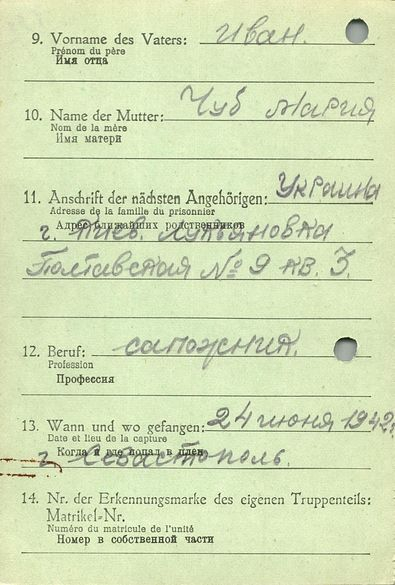 9. Vorname des Vaters: Иван.
Prénom du père
Имя отца
10. Name der Mutter: Чуб Мария
Nom de la mère
Имя матери
11. Anschrift der nächsten Angehörigen: Украина
Adresse de la famille du prisonnier
Адрес ближайших родственников
г. Киев. Лукьяновка
Полтавская № 9 кв. 3.
12. Beruf: сапожник.
Profession
Профессия
13. Wann und wo gefangen: 24 июня 1942г
Date et lieu de la capture
Когда и где попал в плен
г. Севастополь.
14. Nr. der Erkennungsmarke des eigenen Truppenteils:
Matrikel-Nr.
Numéro du matricule de l'unité
Номер в собственной части